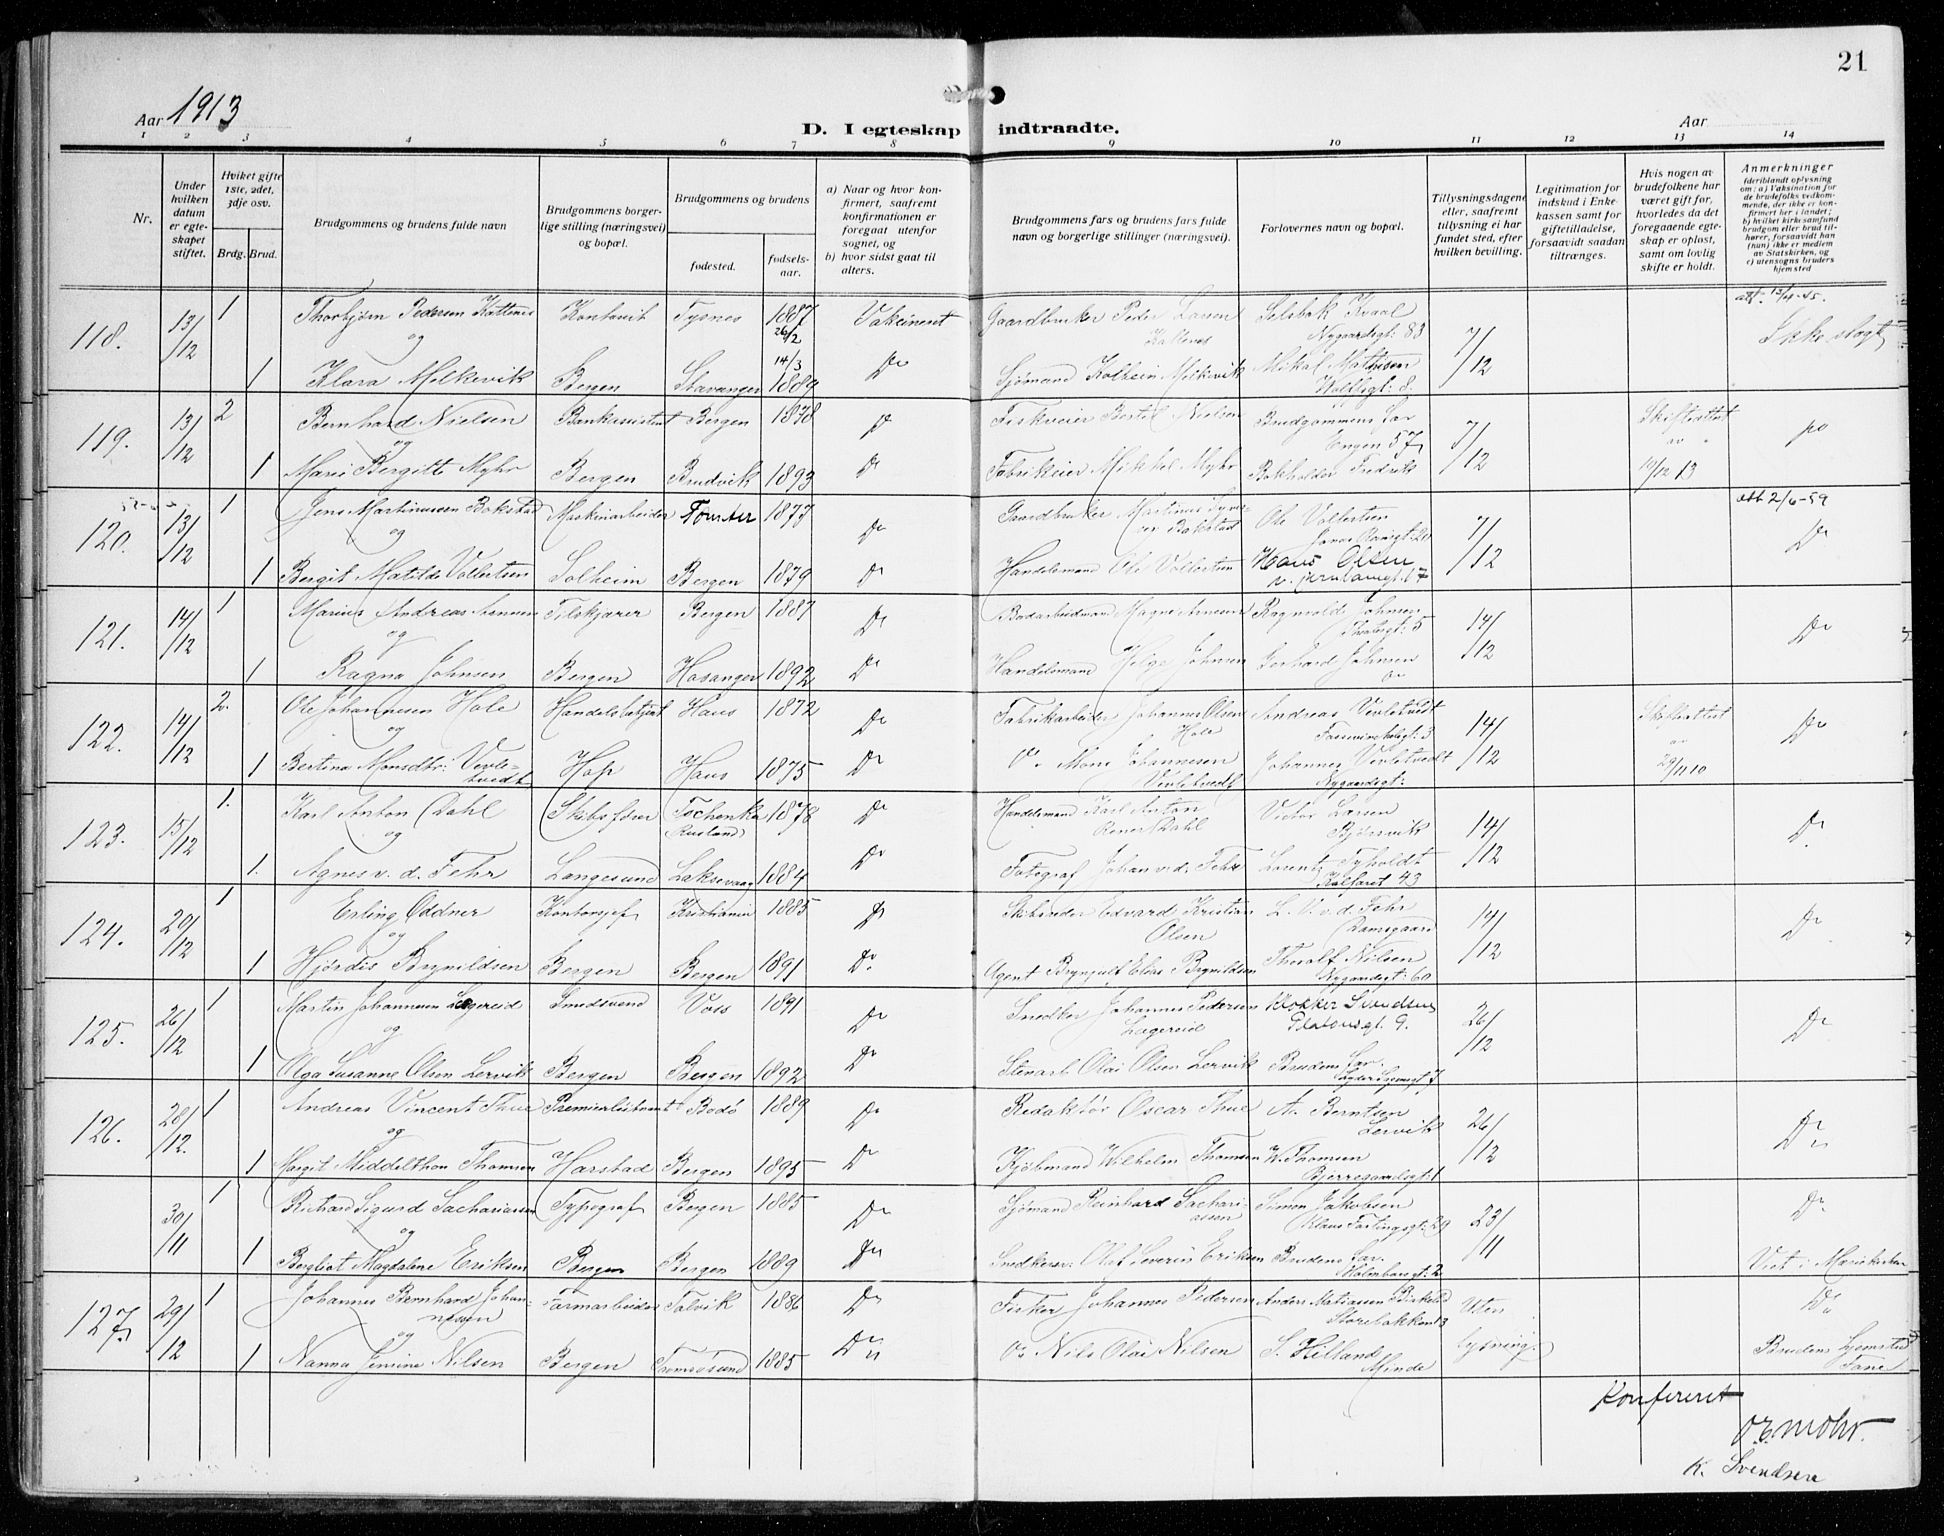 21
Aar 1913
Aar
D. I egteskap indtraadte.
1 2 3 4 5 6 7 8 9 10 11 12 13 14
Nr.
Under hvilken datum er egteskapet stiftet.
Hviket gifte 1ste, 2det, 3dje osv.
Brdg. Brud.
Brudgommens og brudens fulde navn
Brudgommens borgerlige stilling (næringsvei) og bopæl.
Brudgommens og brudens
fødested.
fødselsaar.
a) Naar og hvor konfirmert, saafremt konfirmationen er foregaat utenfor sognet, og
b) hvor sidst gaat til alters.
Brudgommens fars og brudens fars fulde navn og borgerlige stillinger (næringsvei).
Forlovernes navn og bopæl.
Tillysningsdagene eller, saafremt tillysning ei har fundet sted, efter hvilken bevilling.
Legitimation for indskud i Enkekassen samt for giftetilladelse, forsaavidt saadan tiltrænges.
Hvis nogen av brudefolkene har været gift før, hvorledes da det foregaaende egteskap er opløst, samt om lovlig skifte er holdt.
Anmerkninger
(deriblandt oplysning om: a) Vaksination for de brudefolks vedkommende, der ikke er konfirmert her i landet; b) hvilket kirkesamfund brudgom eller brud tilhører, forsaavidt han (hun) ikke er medlem av Statskirken, og c) utensogns bruders hjemsted
118. 13/12 1 Thorbjørn Pedersen Kattenes Kontorist Tysnes 1887 26/2 Vaksinert Gaardbruker Peder Larsen Kattenes Selsbak Kvaal Nygaardsgt: 83 7/12 att. 13/4-45. Ikke slegt
og
1 Klara Melkevik Bergen Stavanger 14/3 1889 Do Sjømand Kolbein Melkevik Mikal Mathisen 8
119. 13/12 2 Bernhard Nielsen Bankassistent Bergen 1878 Do Fiskeeier Bertel Nielsen Brudgommens Far Engen 57 7/12 Skifteattest av 10/12 13 Do
og
1 Marie Bergitte Myhr Bergen Bruvik 1893 Do Fabrikeier Mikkel Myhr Bokholder Fredrik
120. 13/12 1 Jens Martinussen Bakstad Maskinarbeider Tomter 1877 Do Gaardbruker Martinus Bakstad Ole Vollertsen 20 7/12 att 2/6-59 Do
og
1 Bergit Matilde Vollertsen Solheim Bergen 1879 Do Handelsmand Ole Vollertsen Hans Olsen 17
121. 14/12 1 Marius Andreas Arnesen Tilskjærer Bergen 1887 Do Magne Arnesen Ragnvald Johnsen Theatergt: 5 14/12 Do
og
1 Ragna Johnsen Bergen Hosanger 1892 Do Handelsmand Helge Johnsen Gerhard Johnsen
122. 14/12 2. Ole Johannesen Hole Handelsbetjent Haus 1872 Do Fabrikarbeider Johannes Olsen Hole Andreas Vevletvedt 3 14/12 Skifteattest av 29/11 10 Do
og
1 Bertina Monsdtr: Vevletvedt Hop Haus 1875 Do Do Mons Johannesen Vevletvedt Johannes Vevletvedt Nygaardsgt:
123. 15/12 1. Karl Anton Dahl Skibsfører Tochenka (Rusland) 1878 Do Handelsmand Karl Anton Dahl Victor Larsen Bjørsvik 14/12 Do
og
1. Agnes v. d. Fehr Langesund Laksevaag 1884 Do Fotograf Johan v. d. Fehr Lorentz Kalfaret 43
124. 29/12 1 Erling Oddner Kontorsjef Kristiania 1885 Do Skibsreder Edvard Kristian Olsen v. d. Fehr Damsgaard 14/12 Do
og
1 Hjørdis Brynildsen Bergen Bergen 1891 Do Agent Brynjulf Elias Brynildsen Thoralf Nilsen Nygaardsgt: 60
125. 26/12 1 Martin Johannesen Lægereid Smedsvend Voss 1891 Do Snedker Johannes Pedersen Lægereid Klokker Svendsen Platousgt. 9. 26/12 Do
og
1 Olga Susanne Olsen Lervik Bergen Bergen 1892 Do Stenarb. Olai Olsen Lervik Brudens Far. 7
126. 28/12. 1 Andreas Vincent Thue Premierløitnant Bodø 1889 Do Redaktør Oscar Thue A. Berntsen Lervik 26/12 Do
og
1 Margit Middelthon Thomsen Harstad Bergen 1895 Do Kjøbmand Wilhelm Thomsen W. Thomsen Bjerregaardsgt: 1
30/11 1 Richard Sigurd Sachariassen Typograf Bergen 1885 Do Sjømand Reinhard Sachariassen Simon Jakobsen Klaus Fastingsgt: 29 23/11 Do
og
1 Bergliot Magdalene Eriksen Bergen Bergen 1889 Do Snedkersv: Olaf Severin Eriksen Brudens Far. 2 Viet i Mariekirken
127. 29/12 1 Johannes Bernhard Johannesen Formarbeider Talvik 1886 Do Fisker Johannes Pedersen Anders Matiassen 3 Uten lysning. Do
og
1 Nanna Jensine Nilsen Bergen Tromsøsund 1885 Do Do Nils Olai Nilsen S. Hilland Minde Brudens hjemsted Fane
Konfereret
O. E. Mohr.
K. Svendsen